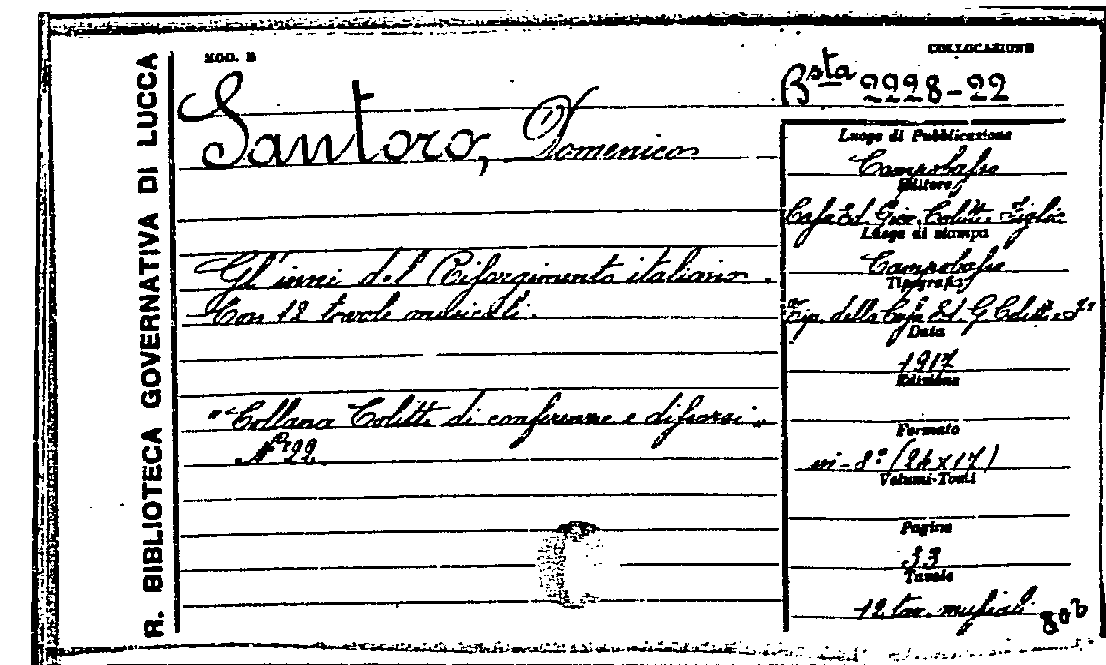 R. BIBLIOTECA GOVERNATIVA DI LUCCA
MOD. B
COLLOCAZIONE
Bsta 2228-22
Santoro, Domenico
Gl'inni del Risorgimento italiano.
Con 12 tavole musicali.
"Collana Colitti di conferenze e discorsi"
N° 22
Luogo di Pubblicazione
Campobasso
Editore
Casa Ed. Giov. Colitti e Figlio
Luogo di stampa
Campobasso
Tipografia
Tip. della Casa Ed. G. Colitti e F°
Data
1917
Edizione
Formato
in-8° (24x17)
Volumi-Tomi
Pagine
33
Tavole
12 tav. musicali